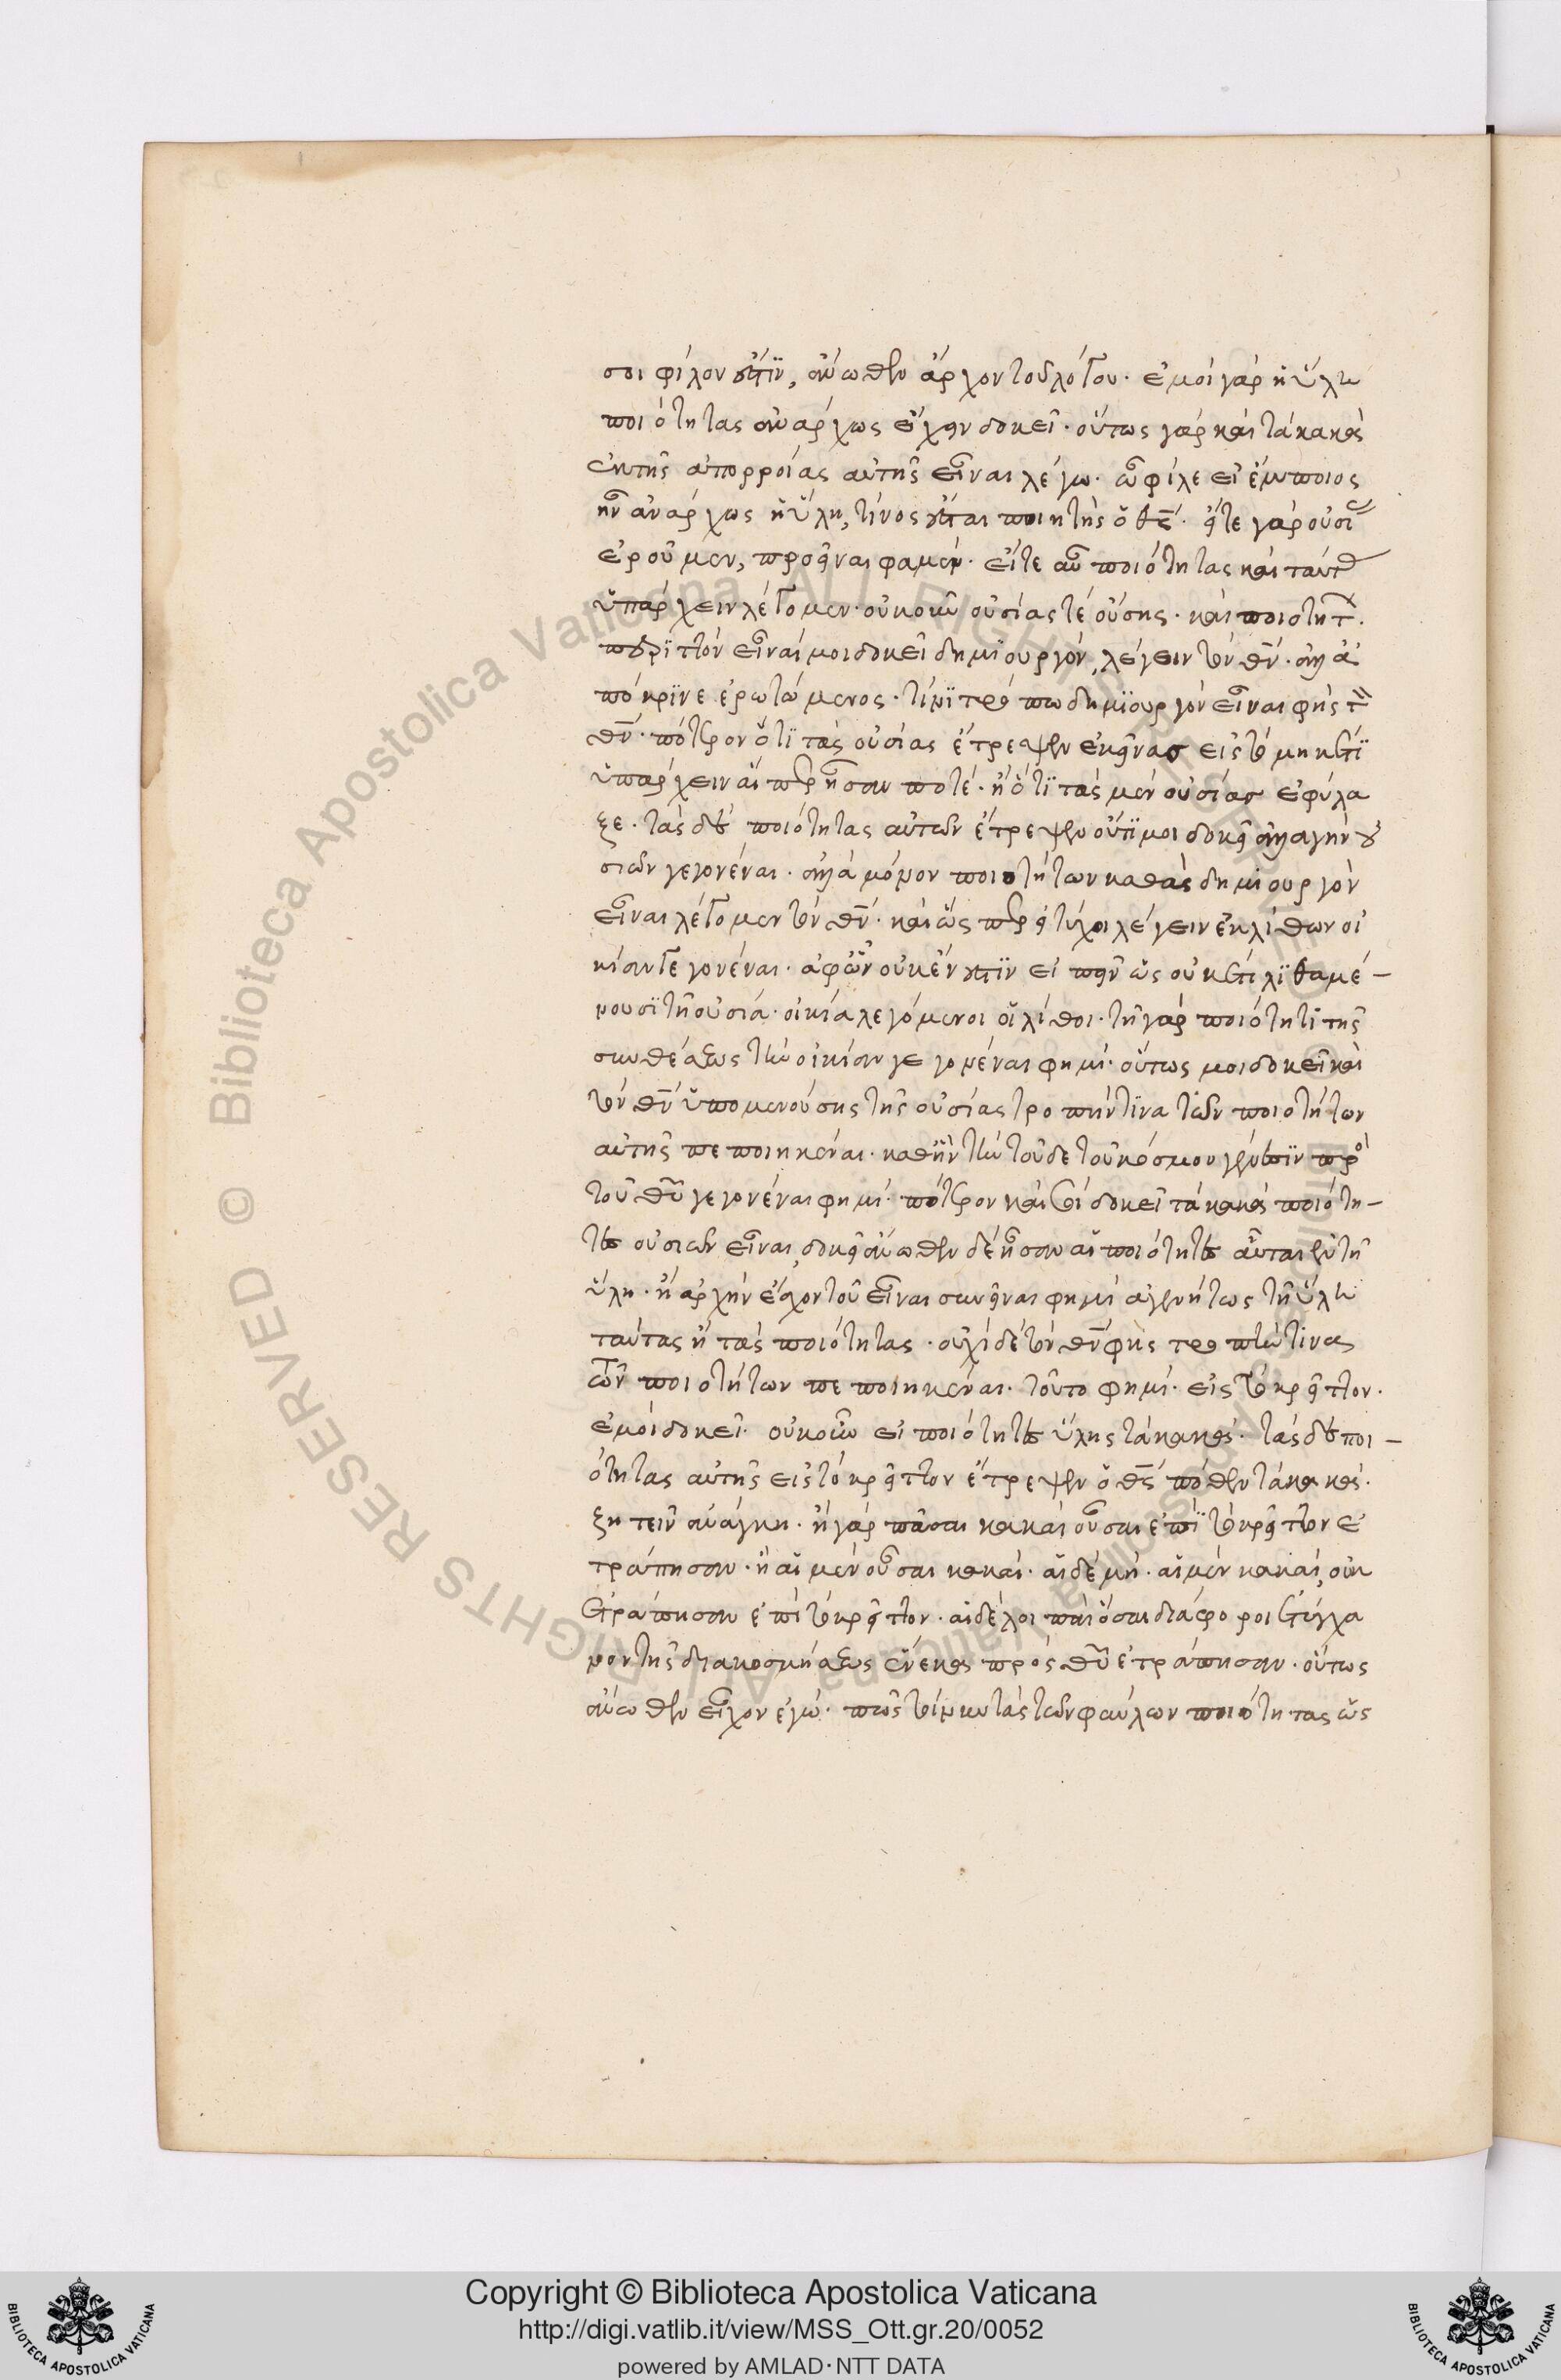 σοι φίλον ἐστὶν, ἄνωθεν ἄρχου τοῦ λόγου. ἐμοὶ γὰρ ἡ ὕλη
ποιότητας ἀνάρχως ἔχειν δοκεῖ. οὕτως γὰρ καὶ τὰ κακὰ
ἐκ τῆς ἀπορροίας αὐτῆς εἶναι λέγω. ὦ φίλε εἰ ἔμποιος
ἦν ἀνάρχως ἡ ὕλη, τίνος ἔσται ποιητὴς ὁ θς. εἴτε γὰρ οὐσί
ἐροῦμεν, προεῖναι φαμέν. εἴτε αὖ ποιότητας καὶ ταύτ
ὑπάρχειν λέγομεν. οὐκοῦν οὐσίας τε οὔσης. καὶ ποιοτήτ.
περιττὸν εἶναί μοι δοκεῖ δημιουργὸν, λέγειν τὸν θν. ἀλλ ἀ
πόκριναι ἐρωτώμενος. τίνι τρόπω δημιουργὸν εἶναι φὴς τ
θν. πότερον ὅτι τὰς οὐσίας ἔτρεψεν ἐκείνας εἰς τὸ μηκέτι
ὑπάρχειν αἵπερ ἦσαν ποτέ. ἢ ὅτι τὰς μὲν οὐσίας ἐφύλα
ξε. τὰς δὲ ποιότητας αὐτῶν ἔτρεψεν οὔτι μοι δοκεῖ ἀλλαγὴν οὐ
σιῶν γεγονέναι. ἀλλὰ μόνον ποιοτήτων καθὰς δημιουργὸν
εἶναι λέγομεν τὸν θν. καὶ ὥσπερ εἰ τύχοι λέγειν ἐκ λίθων οἰ
κίαν γεγονέναι. ἀφ ὧν οὐκ ἔνεστιν εἰπεῖν ὡς οὐκέτι λίθοι μέ-
νουσι τῆ οὐσία. οἰκία λεγόμενοι οἱ λίθοι. τῆ γὰρ ποιότητι τῆς
συνθέσεως τὴν οἰκίαν γεγονέναι φημί. οὕτως μοι δοκεῖ καὶ
τὸν θν ὑπομενούσης τῆς οὐσίας τροπήν τινα τῶν ποιοτήτων
αὐτῆς πεποιηκέναι. καθ ἣν τὴν τοῦδε τοῦ κόσμου γένεσιν πρὸ
τοῦ θυ γεγονέναι φημί. πότερον καὶ σοὶ δοκεῖ τὰ κακὰ ποιότη-
τες οὐσιῶν εἶναι, δοκεῖ ἄνωθεν δὲ ἦσαν αἱ ποιότητες αὗται ἐν τῆ
ὕλη. ἢ ἀρχὴν ἔσχον τοῦ εἶναι συνεῖναι φημὶ ἀγενήτως τῆ ὕλη
ταύτας ἢ τὰς ποιότητας. οὐχὶ δὲ τὸν θν φὴς τροπὴν τινα
τῶν ποιοτήτων πεποιηκέναι. τοῦτο φημί. εἰς τὸ κρεῖττον.
ἐμοὶ δοκεῖ. οὐκοῦν εἰ ποιότητες ὕλης τὰ κακά. τὰς δὲ ποι-
ότητας αὐτῆς εἰς τὸ κρεῖττον ἔτρεψεν ὁ θς πόθεν τὰ κακά.
ζητεῖν ἀνάγκη. ἢ γὰρ πᾶσαι κακαὶ οὖσαι ἐπὶ τὸ κρεῖττον ἐ
τράπησαν. ἢ αἱ μὲν οὖσαι κακαί. αἱ δὲ μή. αἱ μὲν κακαί, οὐκ
ἐτράπησαν ἐπὶ τὸ κρεῖττον. αἱ δὲ λοιπαὶ ὅσαι διάφοροι ἐτύγχα
νον τῆς διακοσμήσεως ἕνεκα πρὸς θυ ἐτράπησαν. οὕτως
ἄνωθεν εἶχον ἐγώ. πῶς τοίνυν τὰς τῶν φαύλων ποιότητας ὡς
Copyright © Biblioteca Apostolica Vaticana
http://digi.vatlib.it/view/MSS_Ott.gr.20/0052
powered by AMLAD·NTT DATA